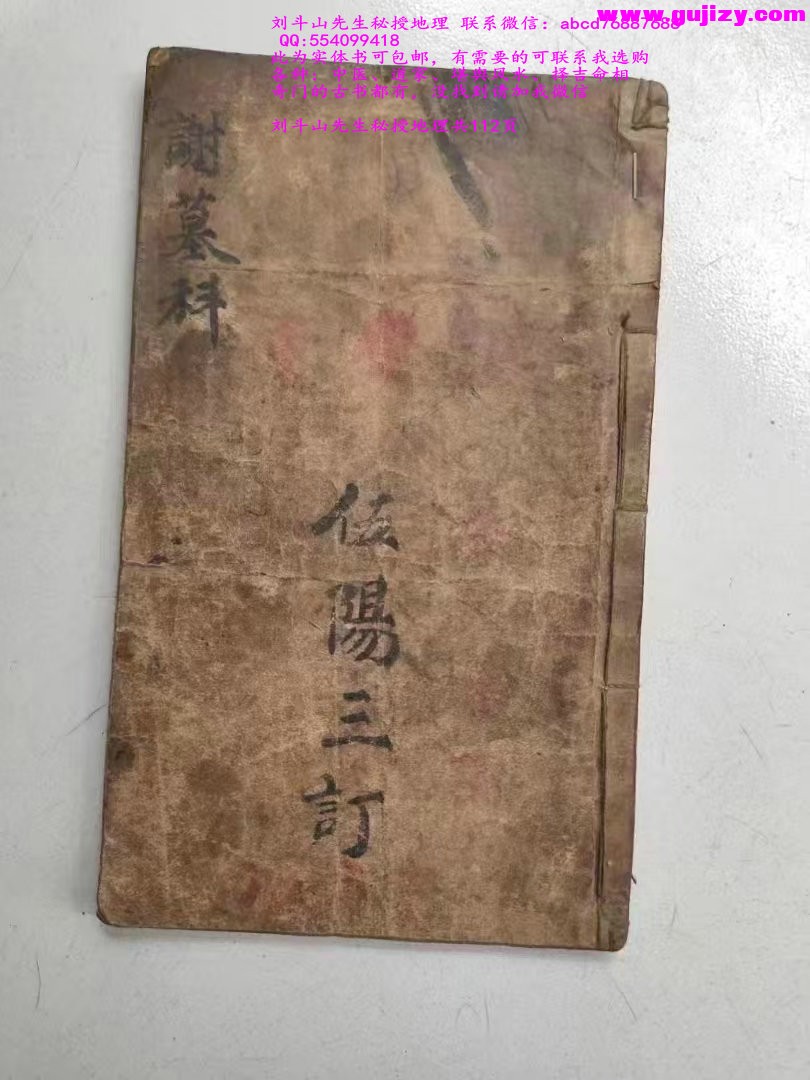 www.gujizy.com
刘斗山先生秘授地理 联系微信：abcd76887688
QQ:554099418
此为实体书可包邮，有需要的可联系我选购
品种：中医、道家、堪舆风水、择吉命相
奇门的古书都有，没找到请加我微信
刘斗山先生秘授地理共112页
謝墓科
伍陽三訂